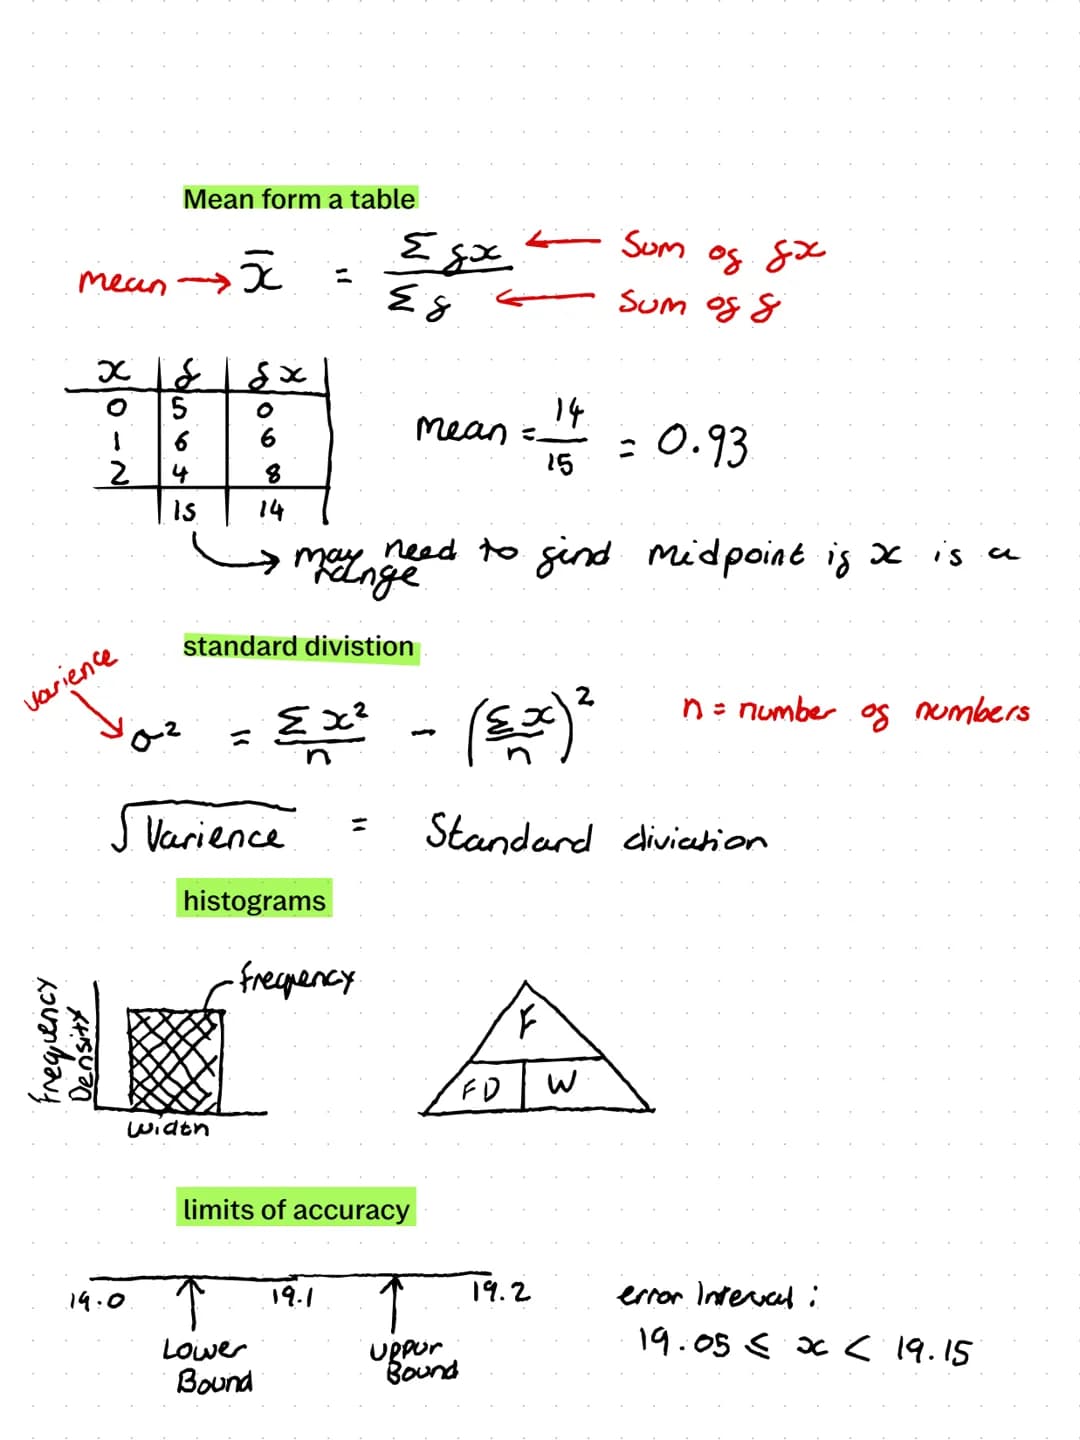 Mean form a table
mean → x̄ = Σfx / Σf ← Sum of fx
← Sum of f
x | f | fx
0 | 5 | 0
1 | 6 | 6
2 | 4 | 8
15 | 14
mean = 14/15 = 0.93
→ may need to find midpoint if x is a
range
standard divistion
varience
σ² = Σx²/n - (Σx/n)²
n = number of numbers
√Varience = Standard diviation
histograms
Frequency
Density
frequency
Width
F
FD W
limits of accuracy
19.0 19.1 19.2
Lower
Bound
uppur
Bound
error Interval :
19.05 ≤ x < 19.15